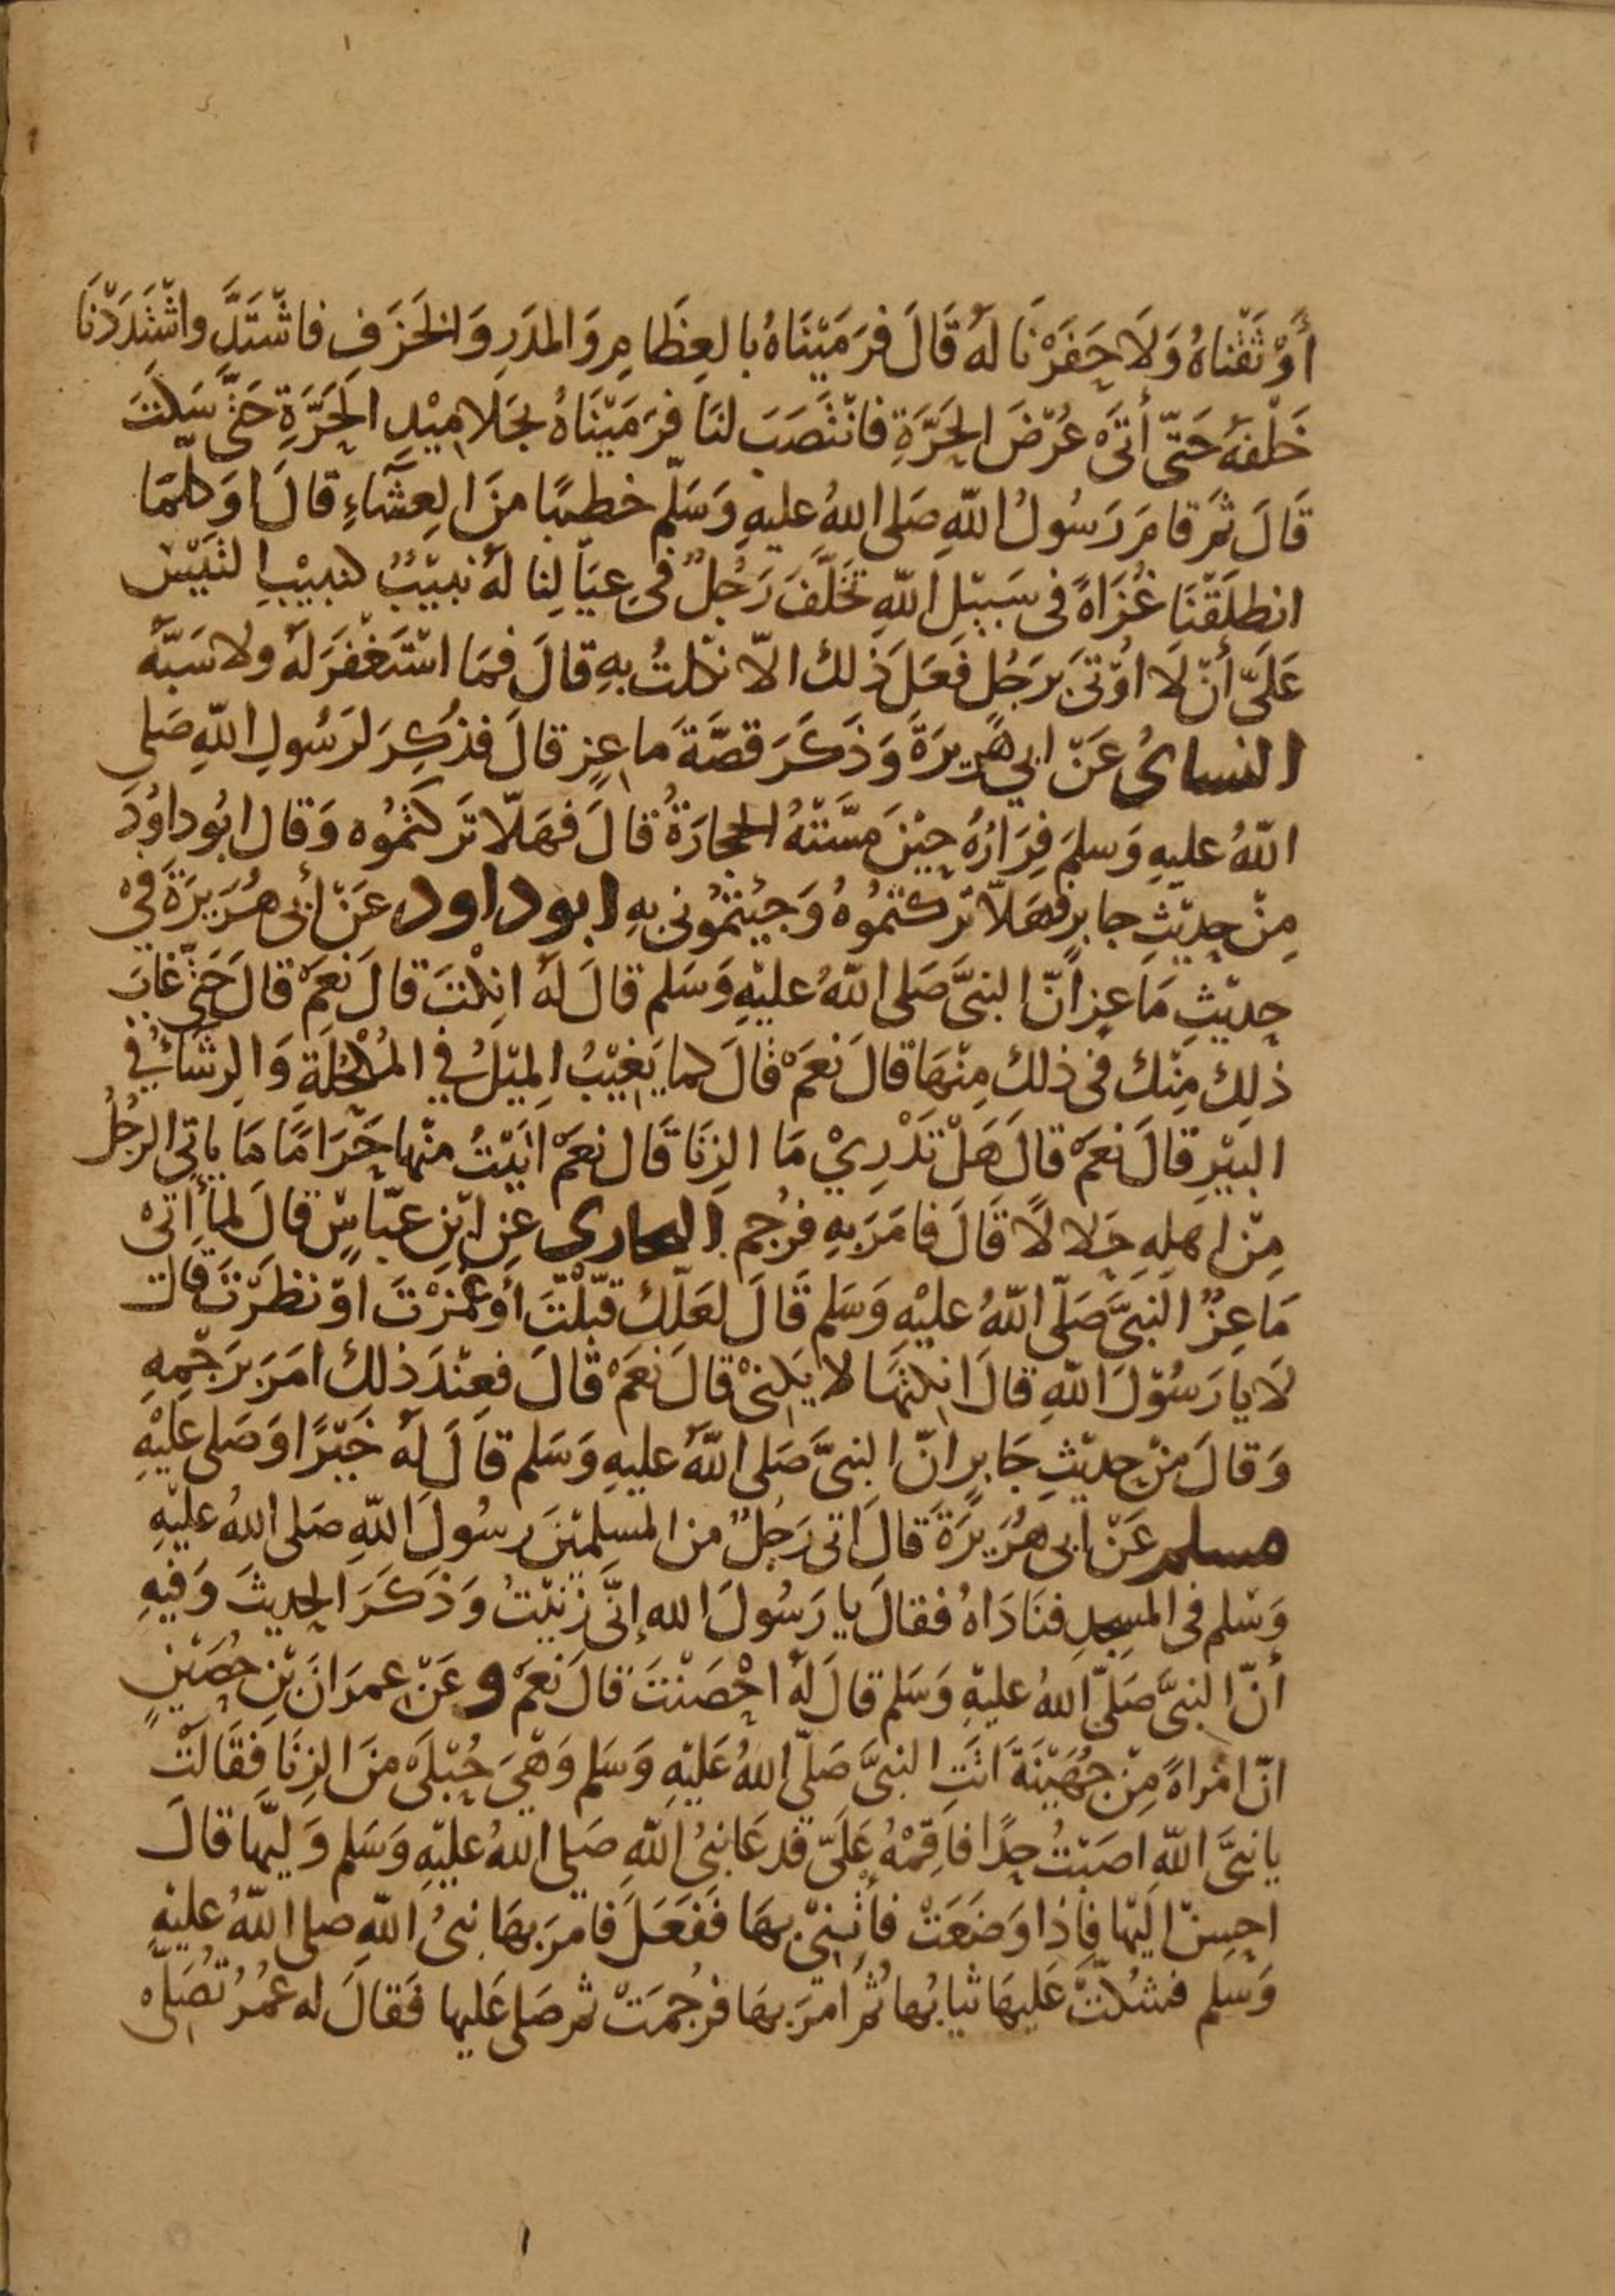 أَوْثَقْنَاهُ وَلَا حَفَرْنَا لَهُ قَالَ فَرَمَيْنَاهُ بِالعِظَامِ وَالمدَرِ وَالخَزَفِ فاشْتَدَّ واشْتَدَدْنَا
خَلْفهُ حَتّى أَتَى عُرْضَ الحَرَّةِ فانْتَصَبَ لنَا فرَمَيْنَاهُ بجَلامِيْدِ الحَرَّةِ حَتَّى سَكَتَ
قَالَ ثمَّ قامَ رَسُولُ اللّهِ صَلى اللهُ عليهِ وَسَلّم خطيبًا منَ العِشَاءِ قالَ اوَكلّمَا
انطلَقْنَا غُزَاةً فى سَبيْلِ اللّهِ تَخَلَّفَ رَجُلٌ فى عِيَالِنا لَهُ نبيْبٌ كنبيْبِ التَيْسِ
عَلَىَّ أنْ لَا اوْتَى برَجُلٍ فَعَلَ ذلك الّا نكلتُ بهِ قالَ فمَا اسْتَغْفرَ لهُ ولا سَبَّهُ
النسائ عَنْ ابي هُرَيرَةَ وَذَكَرَ قصَّةَ ماعِزٍ قالَ فذُكِرَ لرَسُولِ اللّهِ صَلى
اللّهُ عليهِ وَسلمَ فِرَارُهُ حِيْنَ مسَّتْهُ الحجَارَةُ قالَ فهَلّا تَركتُمُوه وَقال ابُو داوُدَ
مِنْ حدِيْثِ جابرٍ فهَلّا تركتُمُوهُ وَجيْتُمُونى بهِ ابو داود عَنْ أبى هُرَيرَةَ فىْ
حدِيْثِ مَاعِزٍ انّ النبىَّ صَلى اللّهُ عليْهِ وَسَلم قالَ لهُ انِكْتَ قالَ نعَمْ قالَ حَتّى غابَ
ذلِكَ مِنْك فى ذلكَ مِنْهَا قالَ نعَمْ قالَ كما يَغيْبُ المِيْلُ في المُكْحُلَةِ وَالرِشَاءُ في
البيْرِ قالَ نَعَمْ قالَ هَلْ تَدْرِيْ مَا الزِنَا قَال نعَمْ اتَيْتُ منْها حَرَامًا مَا ياتى الرجُلُ
مِنْ اهلِهِ حَلالًا قَالَ فامَرَ بهِ فرُجم البخارى عَنِ ابْنِ عبّاسٍ قالَ لمّا أتى
مَاعِزٌ النَبىَّ صَلّى اللّهُ عليْهِ وَسَلم قَالَ لعَلّكَ قبّلْتَ أوْ غَمَزْتَ اوْ نظرْتَ قالَ
لَا يا رَسُوْلَ اللّهِ قالَ انِكتهَا لا يَكنىْ قالَ نعَمْ قالَ فعِنْدَ ذلكَ امَرَ برَجْمِهِ
وَقالَ منْ حدِيْثِ جَابرٍ انّ النبىَّ صَلى اللّهُ عليهِ وَسَلم قالَ لهُ خَيْرًا وَصَلى عليْهِ
مسلم عَنْ ابى هُرَيرَةَ قالَ اتى رَجُلٌ من المسلِمْينَ رسُولَ اللّهِ صَلى اللهُ عليْهِ
وَسَلم فى المسجِدِ فنَادَاهُ فقالَ يا رَسُولَ الله إنّى زنيْتُ وَذَكَرَ الحديثَ وَفيْهِ
أنّ النبىَّ صَلّى اللهُ عليْهِ وَسَلم قالَ لهُ احْصَنْتَ قالَ نعَمْ و عَنْ عِمرَانَ بْنِ حُصَيْنٍ
انّ امْراةً مِنْ جُهَيْنَةَ اتتِ النبىَّ صَلّى اللهُ عَليْهِ وَسَلم وَهْيَ حُبْلَى منَ الزِنَا فَقَالَتْ
يا نبىَّ اللّهِ اصَبْتُ حدًّا فاقِمْهُ عَلَىَّ فدعَا نبىُّ اللّهِ صَلى اللهُ عليْهِ وَسَلم وَليّها قالَ
احسِنْ اليْها فاِذا وَضَعَتْ فأْتنِىْ بهَا فَفَعَلَ فامَرَ بهَا نبىُّ اللّهِ صلى اللّهُ عليْهِ
وَسَلم فشُكّتْ عَليهَا ثيابُها ثُمَّ امَرَ بهَا فرُجمَتْ ثم صَلى عَليها فَقالَ له عُمَرُ تُصَلى